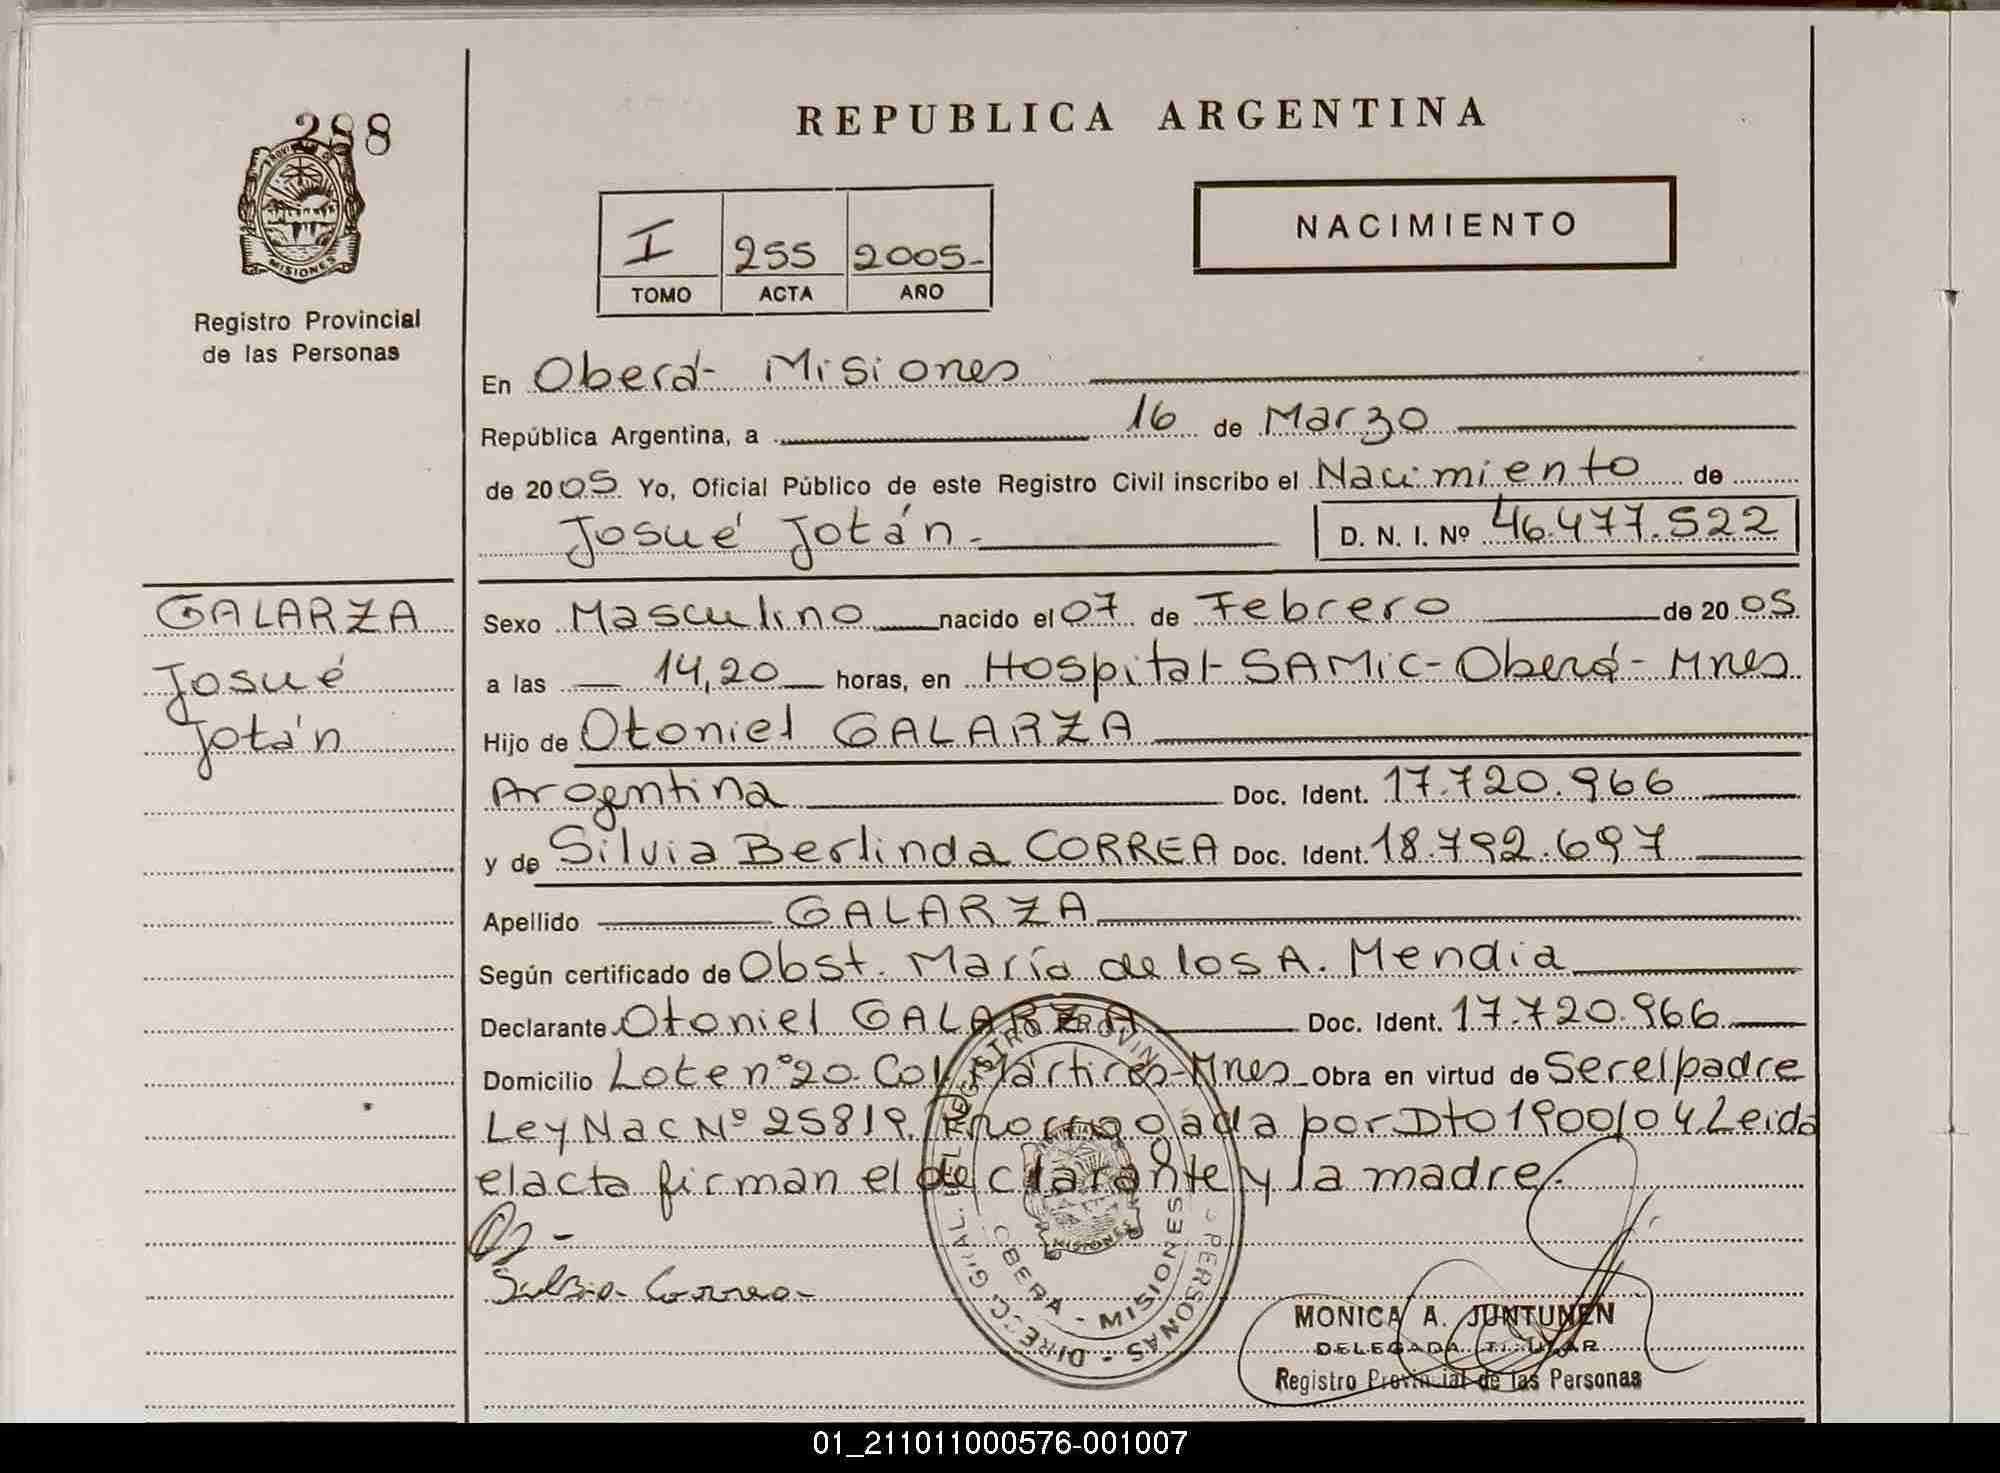 288
PROVINCIA DE
MISIONES
Registro Provincial
de las Personas
REPUBLICA ARGENTINA
NACIMIENTO
I 255 2005-
TOMO ACTA AÑO
En Oberá- Misiones
República Argentina, a 16 de Marzo
de 2005 Yo, Oficial Público de este Registro Civil inscribo el Nacimiento de
Josué Jotán- D. N. I. Nº 46.477.522
GALARZA
Josué
Jotán
Sexo Masculino nacido el 07 de Febrero de 2005
a las 14,20 horas, en Hospital-SAMIC-Oberá-Mnes
Hijo de Otoniel GALARZA
Argentina Doc. Ident. 17.720.966
y de Silvia Berlinda CORREA Doc. Ident. 18.792.697
Apellido GALARZA
Según certificado de Obst. María de los A. Mendia
Declarante Otoniel GALARZA Doc. Ident. 17.720.966
Domicilio Lote nº20. Col. Mártires-Mnes Obra en virtud de Ser el padre
Ley Nac Nº 25819, Prorrogada por Dto 1900/04. Leida
el acta firman el declarante y la madre.
Silvia Correa-
DIRECC. GRAL. DEL REGISTRO PROVINCIAL PERSONAS
OBERA - MISIONES
MISIONES
MONICA A. JUNTUNEN
DELEGADA TITULAR
Registro Provincial de las Personas
01_211011000576-001007